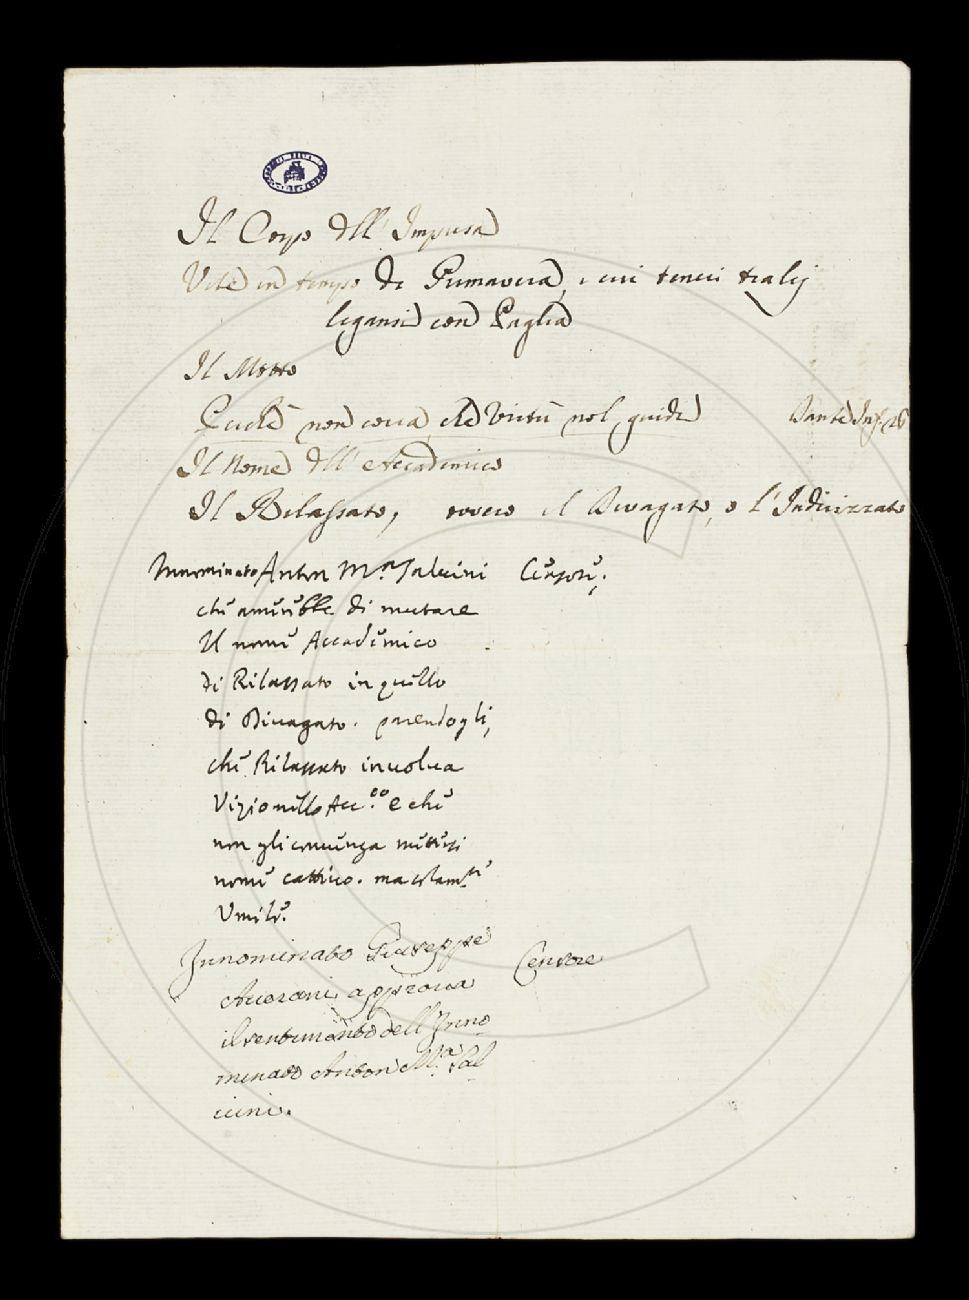 Il Corpo dell' Impresa
Vite in tempo di Primavera, i cui teneri tralcj
legansi con Paglia
Il Motto
Perchè non corra, che Virtù nol guidi Dante Inf. 26
Il Nome dell' Accademico
Il Rilassato, ovvero il Divagato, o l'Indirizzato
Innominato Anton M.ª Salvini Censore;
che amirebbe di mutare
Il nome Accademico
di Rilassato in quello
di Divagato. parendogli,
che Rilassato involva
Vizio nello Acc.co e che
non gli convenga mettersi
nome cattivo. ma solam.te
Umile.
Innominato Giuseppe Censore
Averani, approva
il sentimento dell' Inno
minato Anton M.ª Sal
vini.